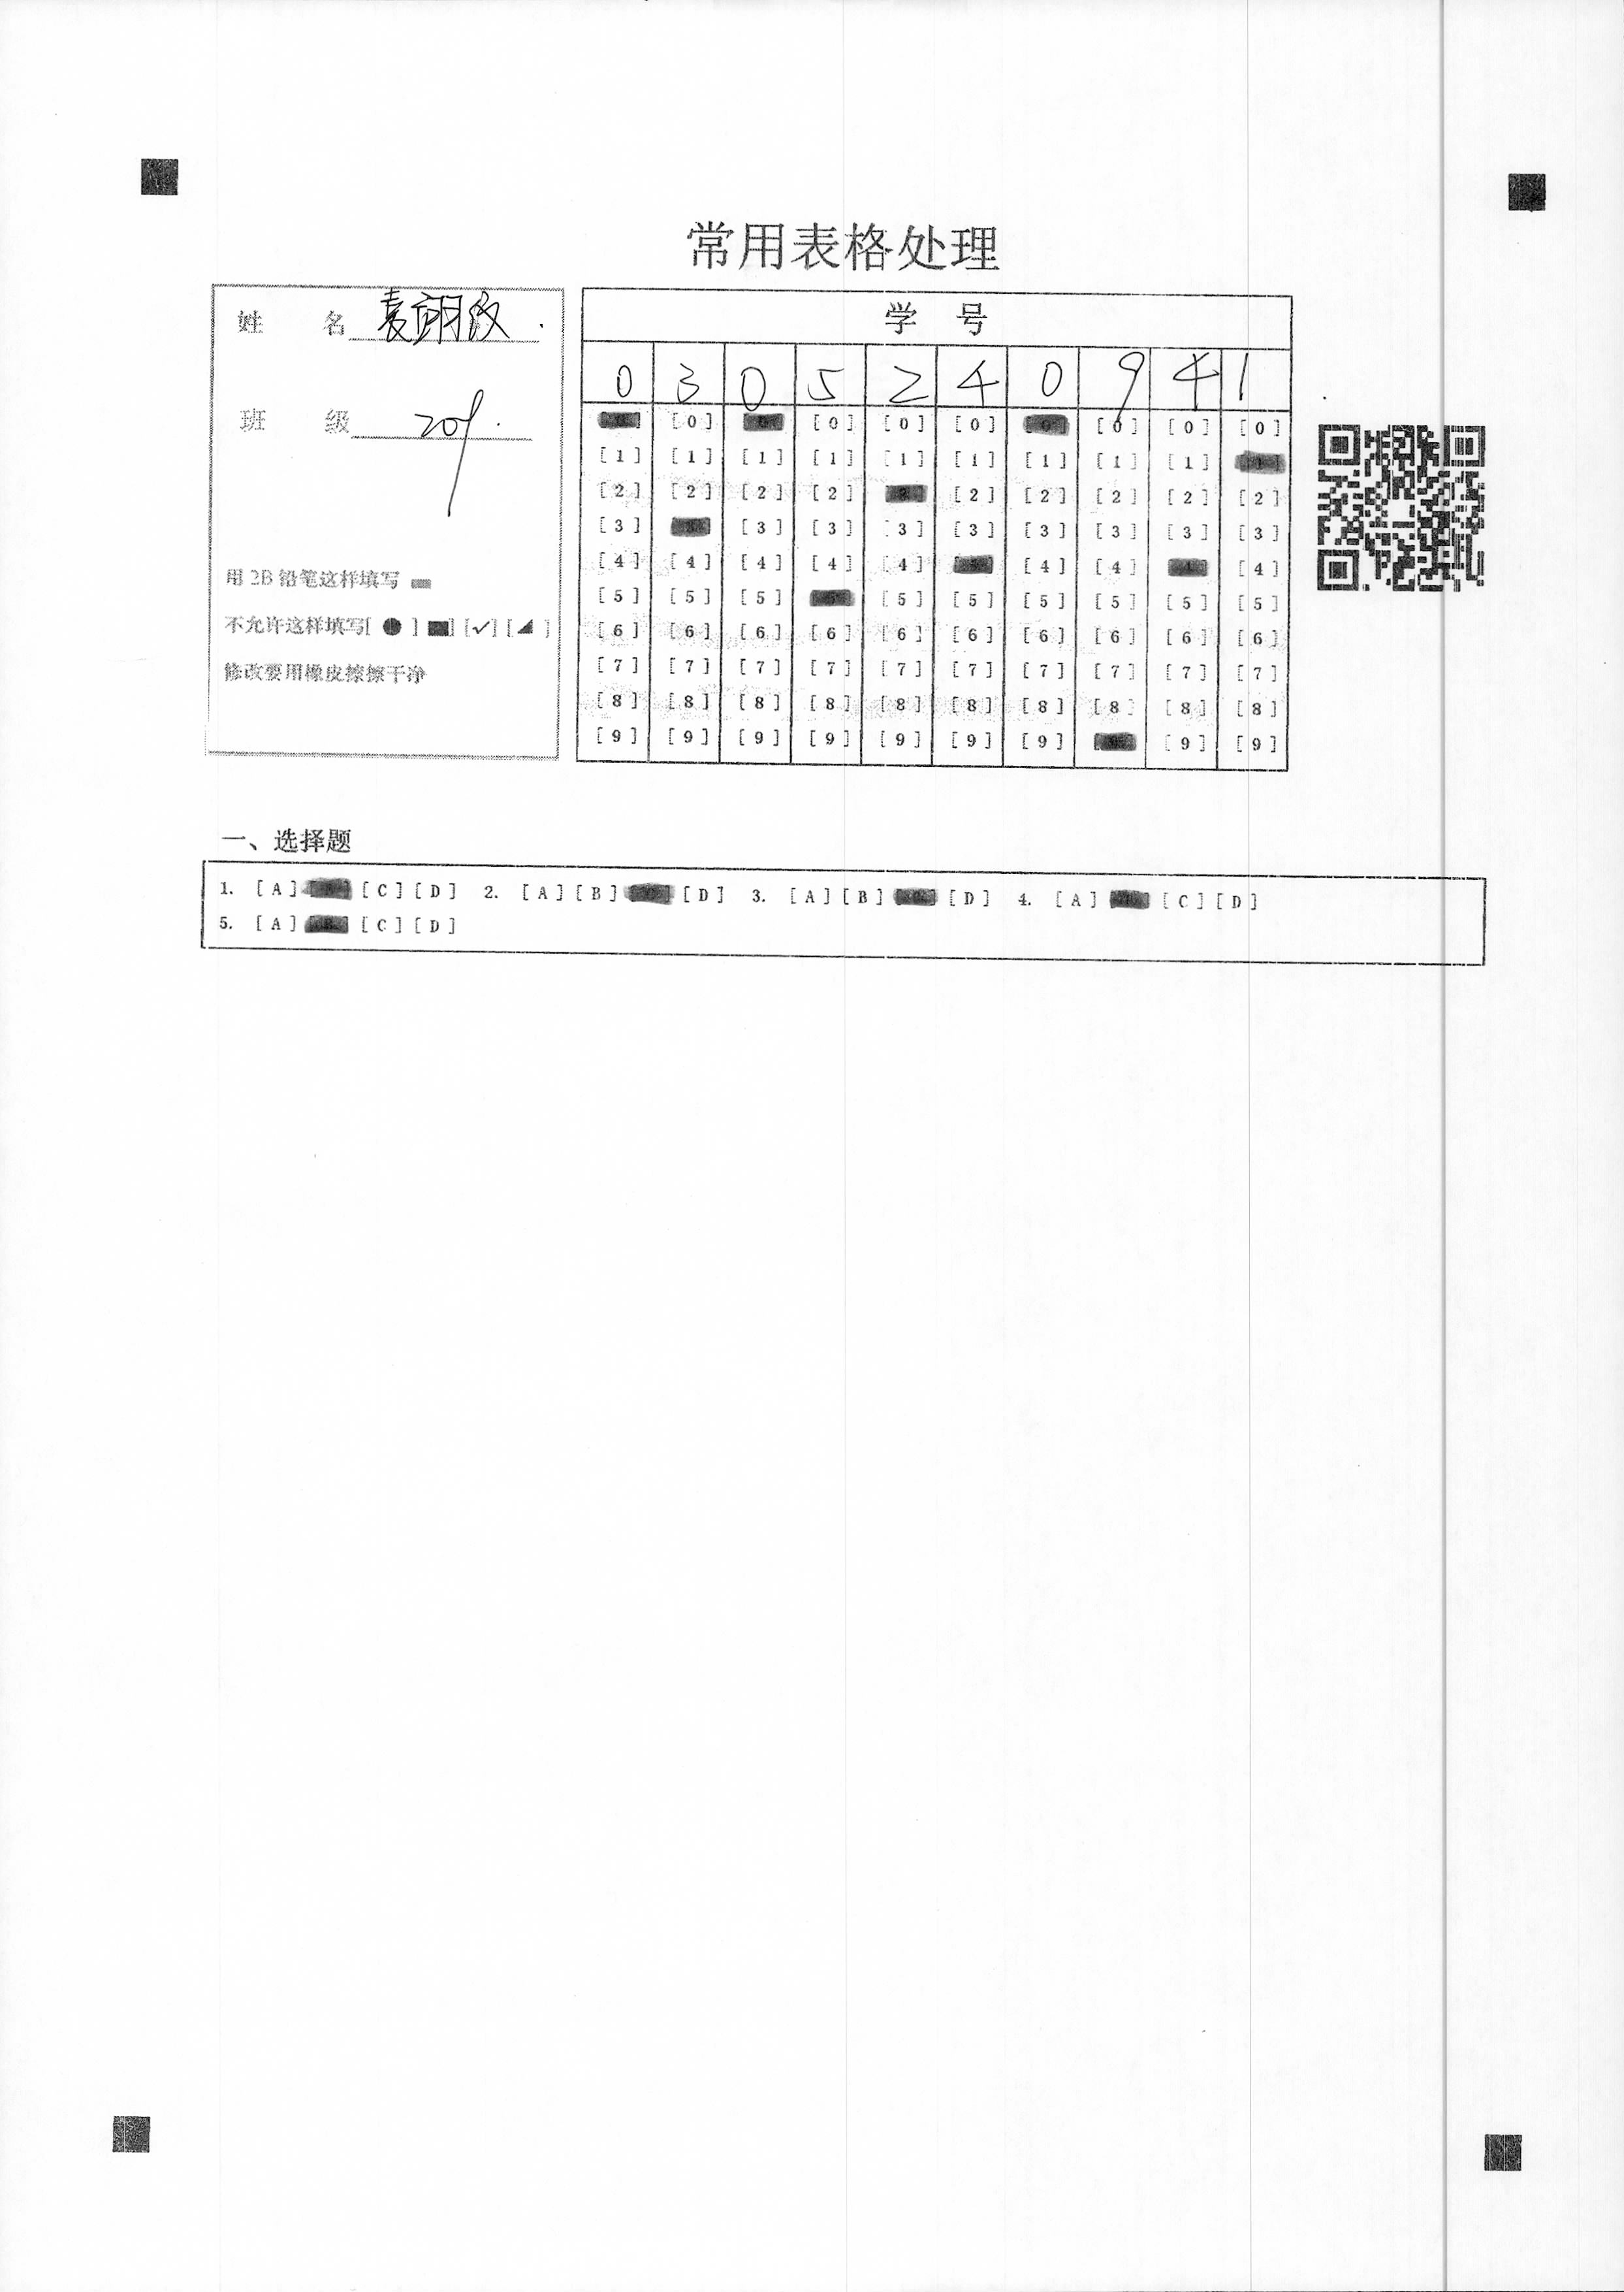 常用表格处理
姓 名 麦翊设
班 级 209.
用 2B 铅笔这样填写
不允许这样填写[ ● ] ■] [✓] [◢ ]
修改要用橡皮擦擦干净
学 号
0 3 0 5 2 4 0 9 4 1
[0] [0] [0] [0] [0] [0] [0] [0] [0] [0]
[1] [1] [1] [1] [1] [1] [1] [1] [1] [1]
[2] [2] [2] [2] [2] [2] [2] [2] [2] [2]
[3] [3] [3] [3] [3] [3] [3] [3] [3] [3]
[4] [4] [4] [4] [4] [4] [4] [4] [4] [4]
[5] [5] [5] [5] [5] [5] [5] [5] [5] [5]
[6] [6] [6] [6] [6] [6] [6] [6] [6] [6]
[7] [7] [7] [7] [7] [7] [7] [7] [7] [7]
[8] [8] [8] [8] [8] [8] [8] [8] [8] [8]
[9] [9] [9] [9] [9] [9] [9] [9] [9] [9]
一、选择题
1. [A] [B] [C] [D] 2. [A] [B] [C] [D] 3. [A] [B] [C] [D] 4. [A] [B] [C] [D]
5. [A] [B] [C] [D]